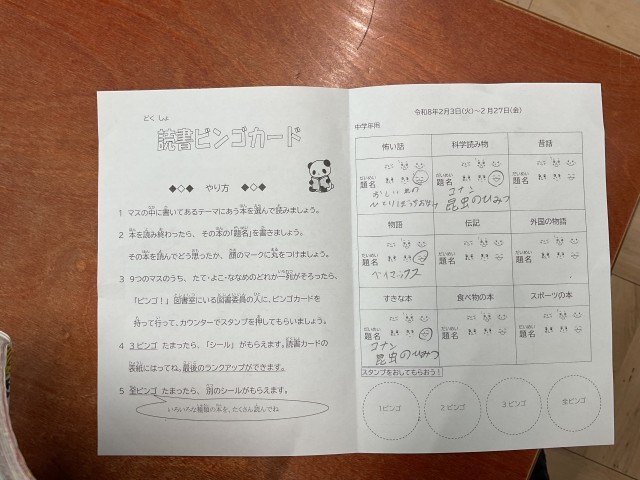 どくしょ
読書ビンゴカード
◆◇◆ やり方 ◆◇◆
1 マスの中に書いてあるテーマにあう本を選んで読みましょう。
2 本を読み終わったら、その本の「題名」を書きましょう。
その本を読んでどう思ったか、顔のマークに丸をつけましょう。
3 9つのマスのうち、たて・よこ・ななめのどれか一列がそろったら、
「ビンゴ！」図書室にいる図書委員の人に、ビンゴカードを
持って行って、カウンターでスタンプを押してもらいましょう。
4 3ビンゴ たまったら、「シール」がもらえます。読書カードの
表紙にはってね。最後のランクアップができます。
5 全ビンゴ たまったら、別のシールがもらえます。
いろいろな種類の本を、たくさん読んでね
令和8年2月3日(火)～2月27日(金)
中学年用
怖い話 科学読み物 昔話
だいめい 題名 だいめい 題名 だいめい 題名
コナン
昆虫のひみつ
物語 伝記 外国の物語
だいめい 題名 だいめい 題名 だいめい 題名
ベイマックス
すきな本 食べ物の本 スポーツの本
だいめい 題名 だいめい 題名 だいめい 題名
コナン
昆虫のひみつ
スタンプをおしてもらおう！
1ビンゴ 2ビンゴ 3ビンゴ 全ビンゴ